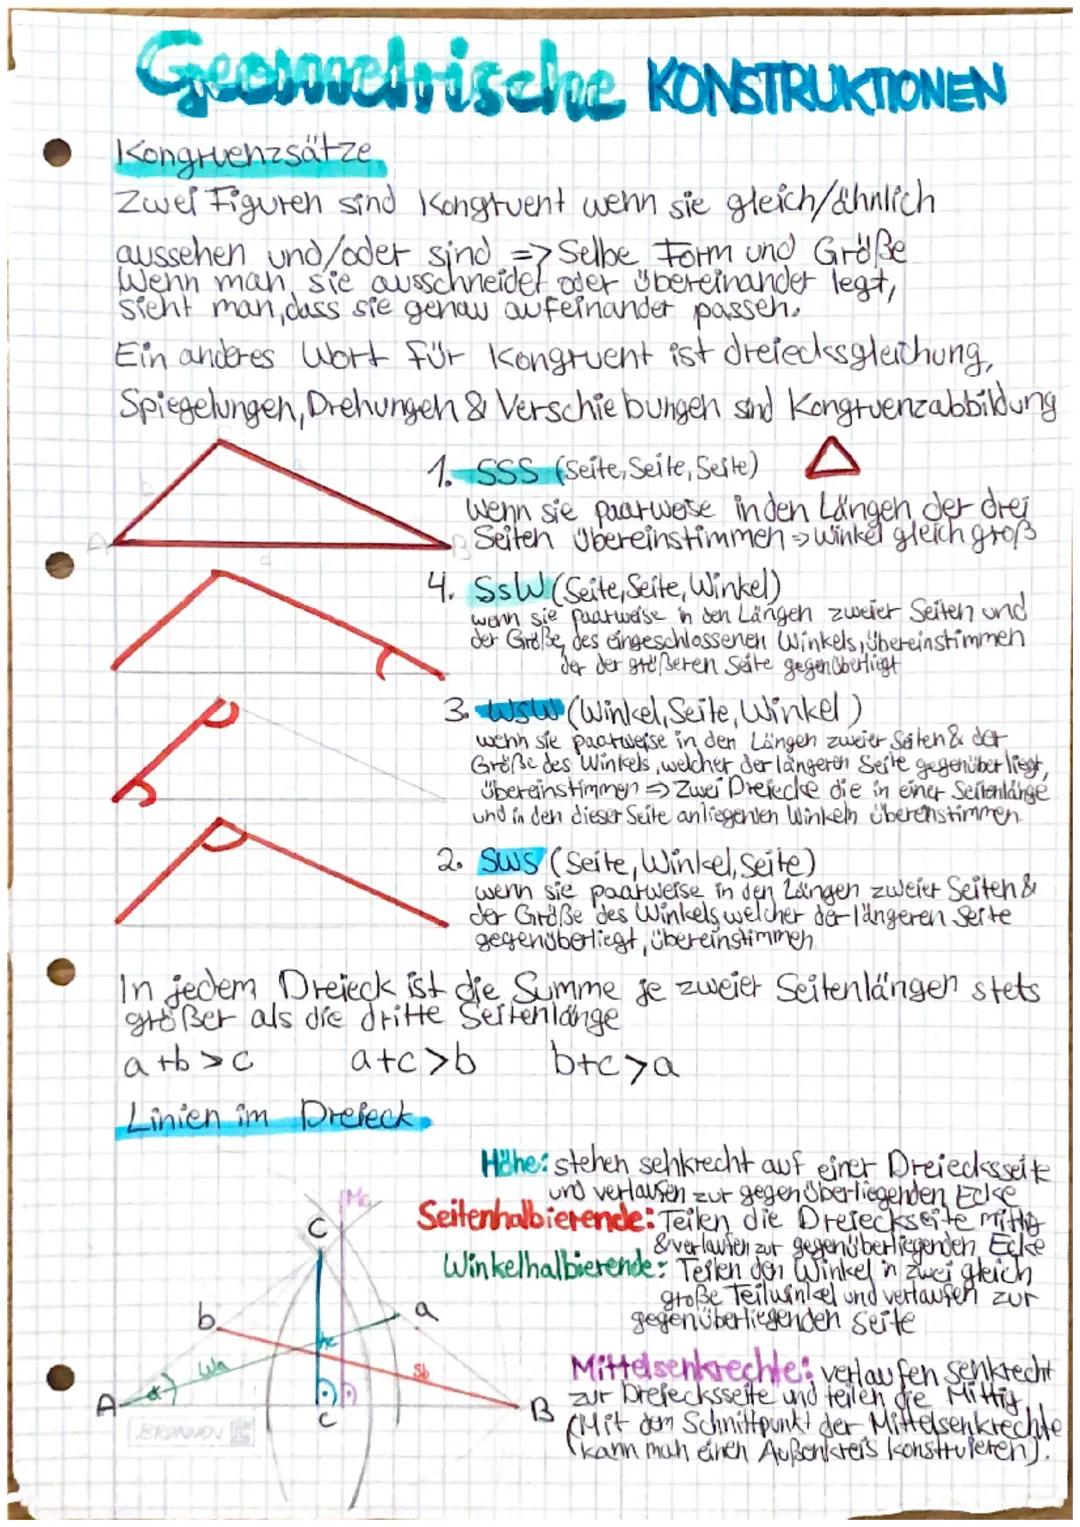 Geometrische KONSTRUKTIONEN
Kongruenzsätze
Zwei Figuren sind Kongruent wenn sie gleich/ähnlich
aussehen und/oder sind => Selbe Form und Größe
Wenn man sie ausschneidet oder übereinander legt,
sieht man, dass sie genau aufeinander passen.
Ein anderes Wort für Kongruent ist dreiecksgleichung,
Spiegelungen, Drehungen & Verschiebungen sind Kongruenzabbildung
1. SSS (Seite, Seite, Seite)
Wenn sie paarweise in den Längen der drei
Seiten übereinstimmen => Winkel gleich groß
A
B
4. SsW (Seite, Seite, Winkel)
wenn sie paarweise in den Längen zweier Seiten und
der Größe, des eingeschlossenen Winkels, übereinstimmen
der der größeren Seite gegenüberliegt
3. WSW (Winkel, Seite, Winkel)
wenn sie paarweise in den Längen zweier Seiten & der
Größe des Winkels, welcher der längeren Seite gegenüber liegt,
übereinstimmen => Zwei Dreiecke die in einer Seitenlänge
und in den dieser Seite anliegenden Winkeln übereinstimmen
2. SWS (Seite, Winkel, Seite)
wenn sie paarweise in den Längen zweier Seiten &
der Größe des Winkels, welcher der längeren Seite
gegenüberliegt, übereinstimmen
In jedem Dreieck ist die Summe je zweier Seitenlängen stets
größer als die dritte Seitenlänge
a+b>c a+c>b b+c>a
Linien im Dreieck
Höhe: stehen sehkrecht auf einer Dreiecksseite
und verlaufen zur gegenüberliegenden Ecke
Seitenhalbierende: Teilen die Dreieckseite mittig
& verlaufen zur gegenüberliegenden Ecke
Winkelhalbierende: Teilen den Winkel in zwei gleich
große Teilwinkel und verlaufen zur
gegenüberliegenden Seite
Mittelsenkrechte: verlaufen senkrecht
zur Dreiecksseite und teilen die Mittig
(Mit dem Schnittpunkt der Mittelsenkrechte
kann man einen Außenkreis konstruieren).
Mc
C
b
a
hc
wa
sb
α
A
c
B
BRUNNEN